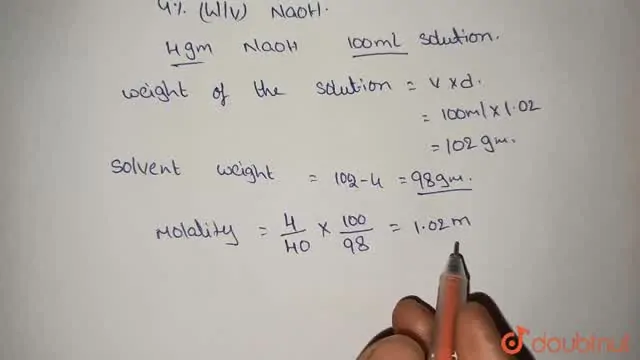 4% (W/V) NaOH.
4gm NaOH 100ml solution.
weight of the solution = v x d.
= 100ml x 1.02
= 102 gm.
solvent weight = 102-4 = 98gm.
Molality = 4/40 x 100/98 = 1.02 m
doubtnut